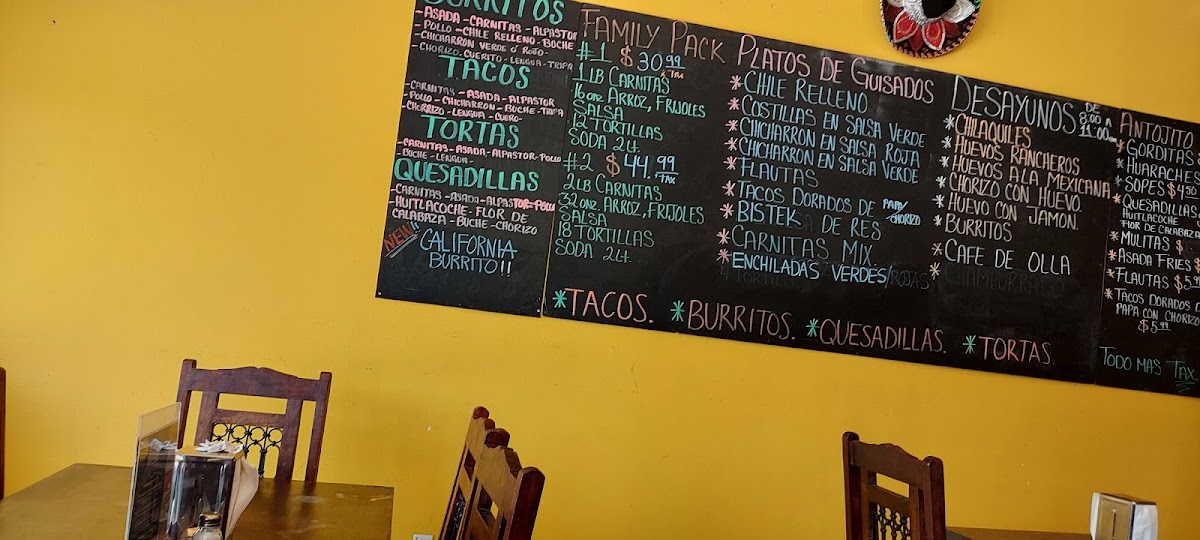 BURRITOS
-ASADA-CARNITAS-ALPASTOR
-POLLO-CHILE RELLENO-BUCHE
-CHICHARRON VERDE Ó ROJO-
-CHORIZO-CUERITO-LENGUA-TRIPA
TACOS
-CARNITAS-ASADA-ALPASTOR
-POLLO-CHICHARRON-BUCHE-TRIPA
CHORIZO-LENGUA-CUERO-
TORTAS
-CARNITAS-ASADA-ALPASTOR-POLLO
BUCHE-LENGUA-
QUESADILLAS
-CARNITAS-ASADA-ALPASTOR-POLLO
-HUITLACOCHE-FLOR DE
CALABAZA-BUCHE-CHORIZO
NEW
CALIFORNIA
BURRITO!!
FAMILY PACK
#1 $30.99
+TAX
1 LB CARNITAS
16 onz ARROZ, FRIJOLES
SALSA
12 TORTILLAS
SODA 2Lt.
#2 $44.99
+TAX
2LB CARNITAS
32 onz. ARROZ, FRIJOLES
SALSA
18 TORTILLAS
SODA 2Lt.
PLATOS DE GUISADOS
*CHILE RELLENO
*COSTILLAS EN SALSA VERDE
*CHICHARRON EN SALSA ROJA
*CHICHARRON EN SALSA VERDE
*FLAUTAS
*TACOS DORADOS DE PAPA/CHORIZO
*BISTEK DE RES
*CARNITAS MIX
*ENCHILADAS VERDES/ROJAS
DESAYUNOS DE 8:00 A 11:00am
*CHILAQUILES
*HUEVOS RANCHEROS
*HUEVOS A LA MEXICANA
*CHORIZO CON HUEVO.
*HUEVO CON JAMON.
*BURRITOS
*CAFE DE OLLA
*CHAMPURRADO
ANTOJITO
*GORDITAS
*HUARACHES
*SOPES $4.50
*QUESADILLAS
HUITLACOCHE
FLOR DE CALABAZA
*MULITAS $
*ASADA FRIES $
*FLAUTAS $5.99
*TACOS DORADOS D
PAPA CON CHORIZO
$5.99
TODO MAS TAX.
*TACOS. *BURRITOS. *QUESADILLAS. *TORTAS.